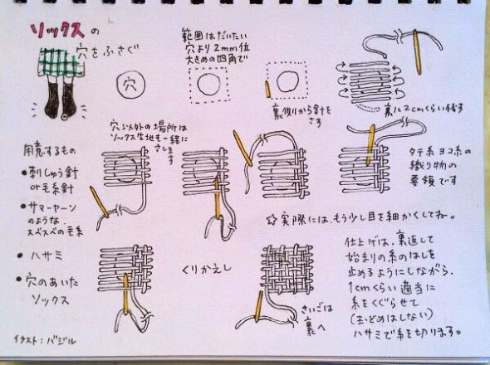 ソックスの
穴をふさぐ
穴
範囲はだいたい
穴より2mm位
大きめの四角で
裏側から針を
さす
裏に2cmくらい残す
穴以外の場所は
ソックス生地も一緒に
さします
タテ糸ヨコ糸の
織り物の
要領です
用意するもの
• 刺しゅう針
or 毛糸針
• サマーヤーン
のような、
スベスベの毛糸
• ハサミ
• 穴のあいた
ソックス
☆実際には、もう少し目を細かくしてね。
くりかえし
さいごは
裏へ
仕上げは、裏返して
始まりの糸のはしを
止めるようにしながら、
1cmくらい適当に
糸をくぐらせて
(玉どめはしない)
ハサミで糸を切ります。
イラスト:バジル